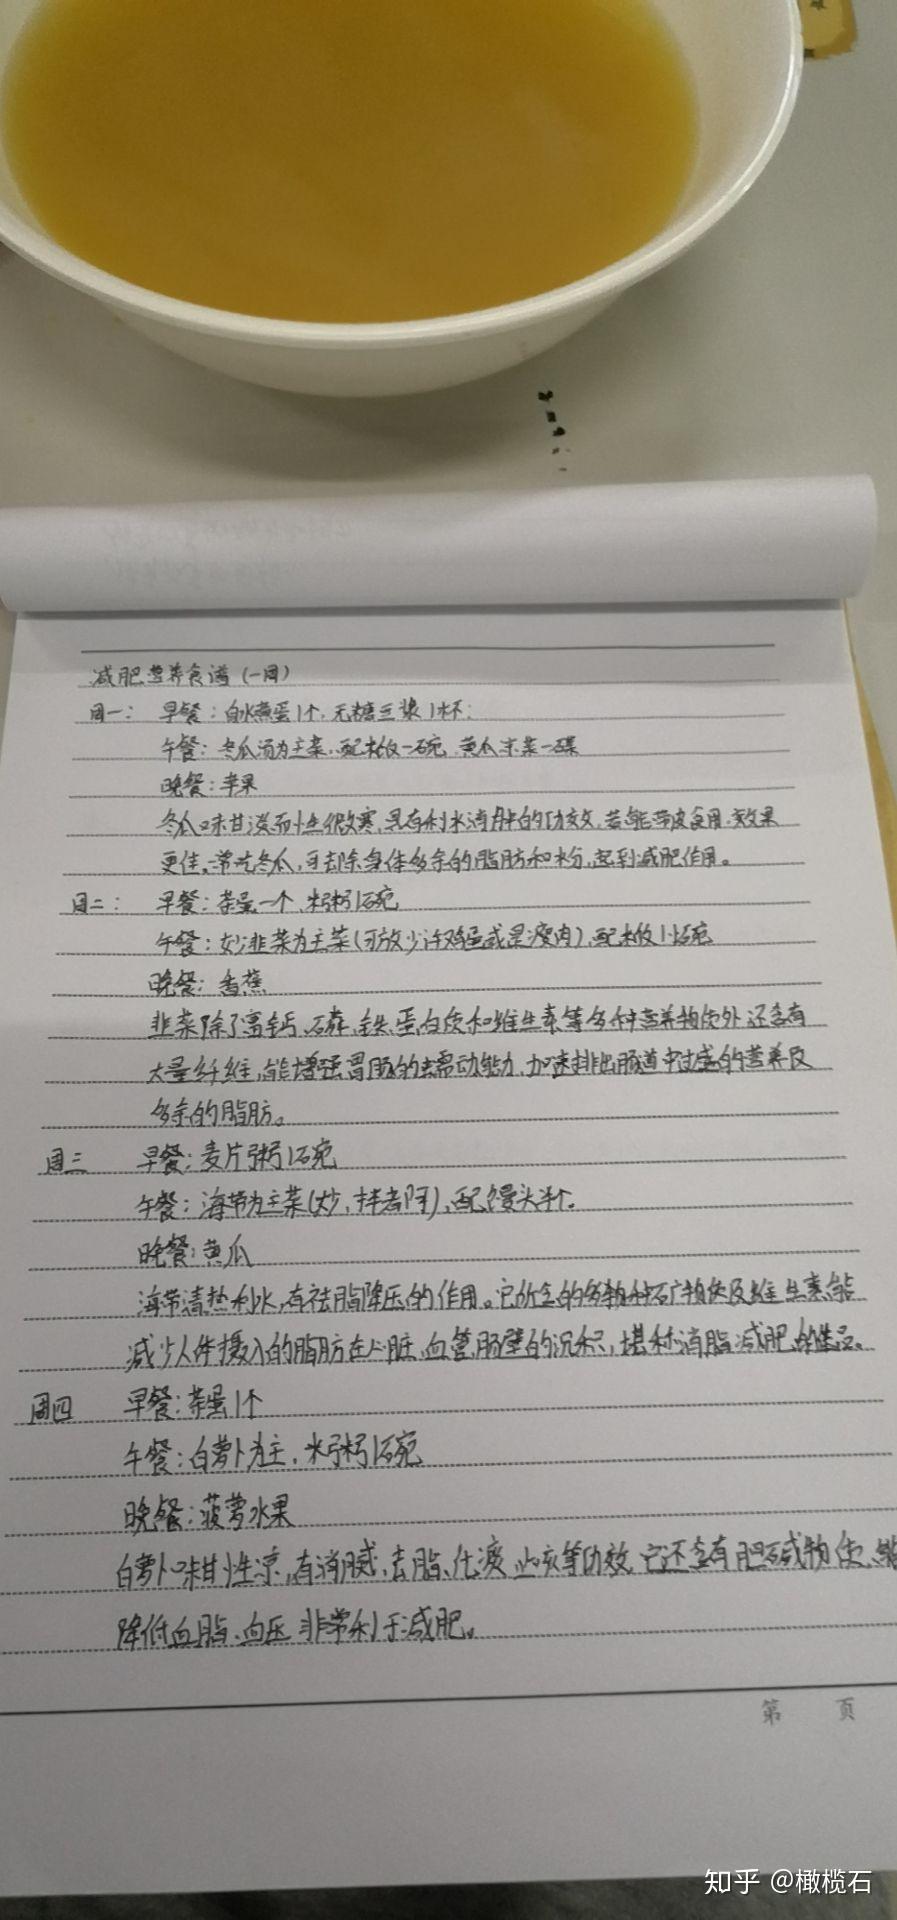 减肥营养食谱(一周)
周一: 早餐:白水煮蛋1个,无糖豆浆1杯;
午餐:冬瓜汤为主菜,配米饭一碗,黄瓜凉菜一碟
晚餐:苹果
冬瓜味甘淡而性微寒,具有利水消肿的功效,若能带皮食用,效果
更佳。常吃冬瓜,可去除身体多余的脂肪和水分,起到减肥作用。
周二: 早餐:茶蛋一个,米粥1碗
午餐:炒韭菜为主菜(可放少许鸡蛋或是瘦肉),配米饭1小碗
晚餐:香蕉
韭菜除了富钙、磷、铁、蛋白质和维生素等多种营养物质外,还含有
大量纤维,能增强胃肠的蠕动能力,加速排出肠道中过盛的营养及
多余的脂肪。
周三 早餐:麦片粥1碗
午餐:海带为主菜(炒、拌者阿),配馒头半个。
晚餐:黄瓜
海带清热利水,有祛脂降压的作用。它所含的多物种矿物质及维生素能
减少人体摄入的脂肪在心脏、血管、肠壁的沉积,堪称消脂减肥的佳品。
周四 早餐:茶蛋1个
午餐:白萝卜为主,米粥1碗
晚餐:菠萝水果
白萝卜味甘性凉,有消腻、去脂、化痰、止咳等功效,它还含有胆碱物质,能
降低血脂、血压,非常利于减肥。
第 页
知乎 @橄榄石